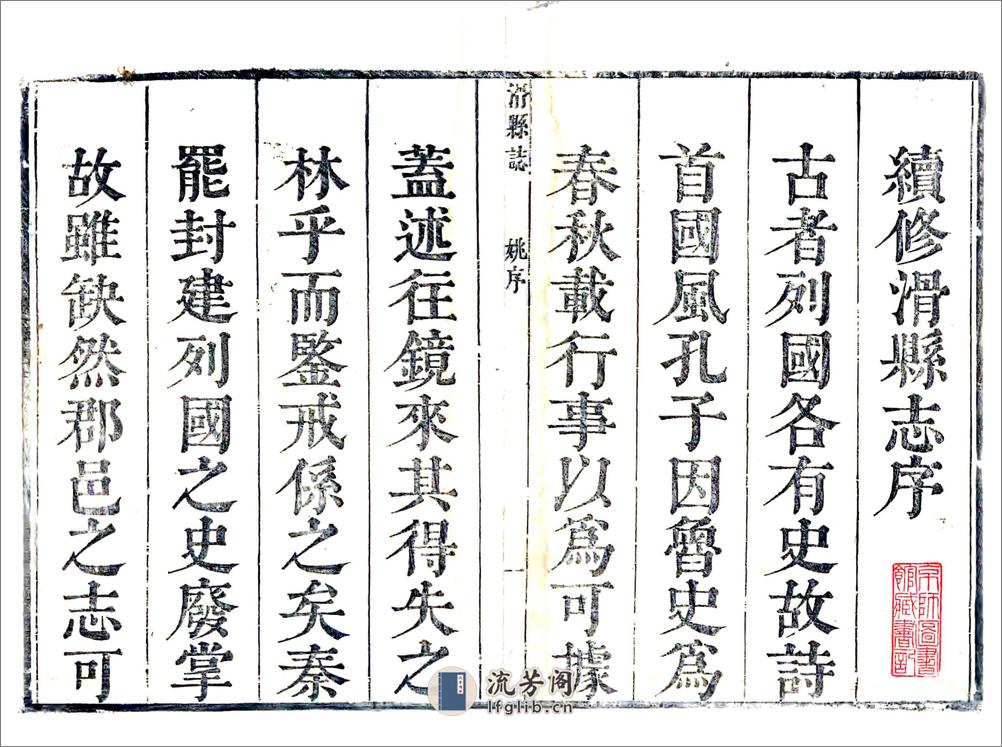 續修滑縣志序
古者列國各有史故詩
首國風孔子因魯史爲
春秋載行事以爲可據
滑縣誌 姚序 一
蓋述往鏡來其得失之
林乎而鑒戒係之矣秦
罷封建列國之史廢掌
故雖缺然郡邑之志可
京師圖書館藏書記
流芳阁
lfglib.cn